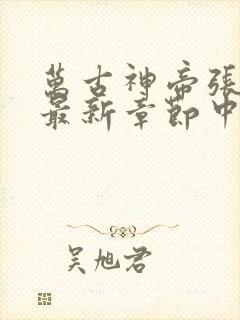 萬古神帝張
最新章節中
吳旭君